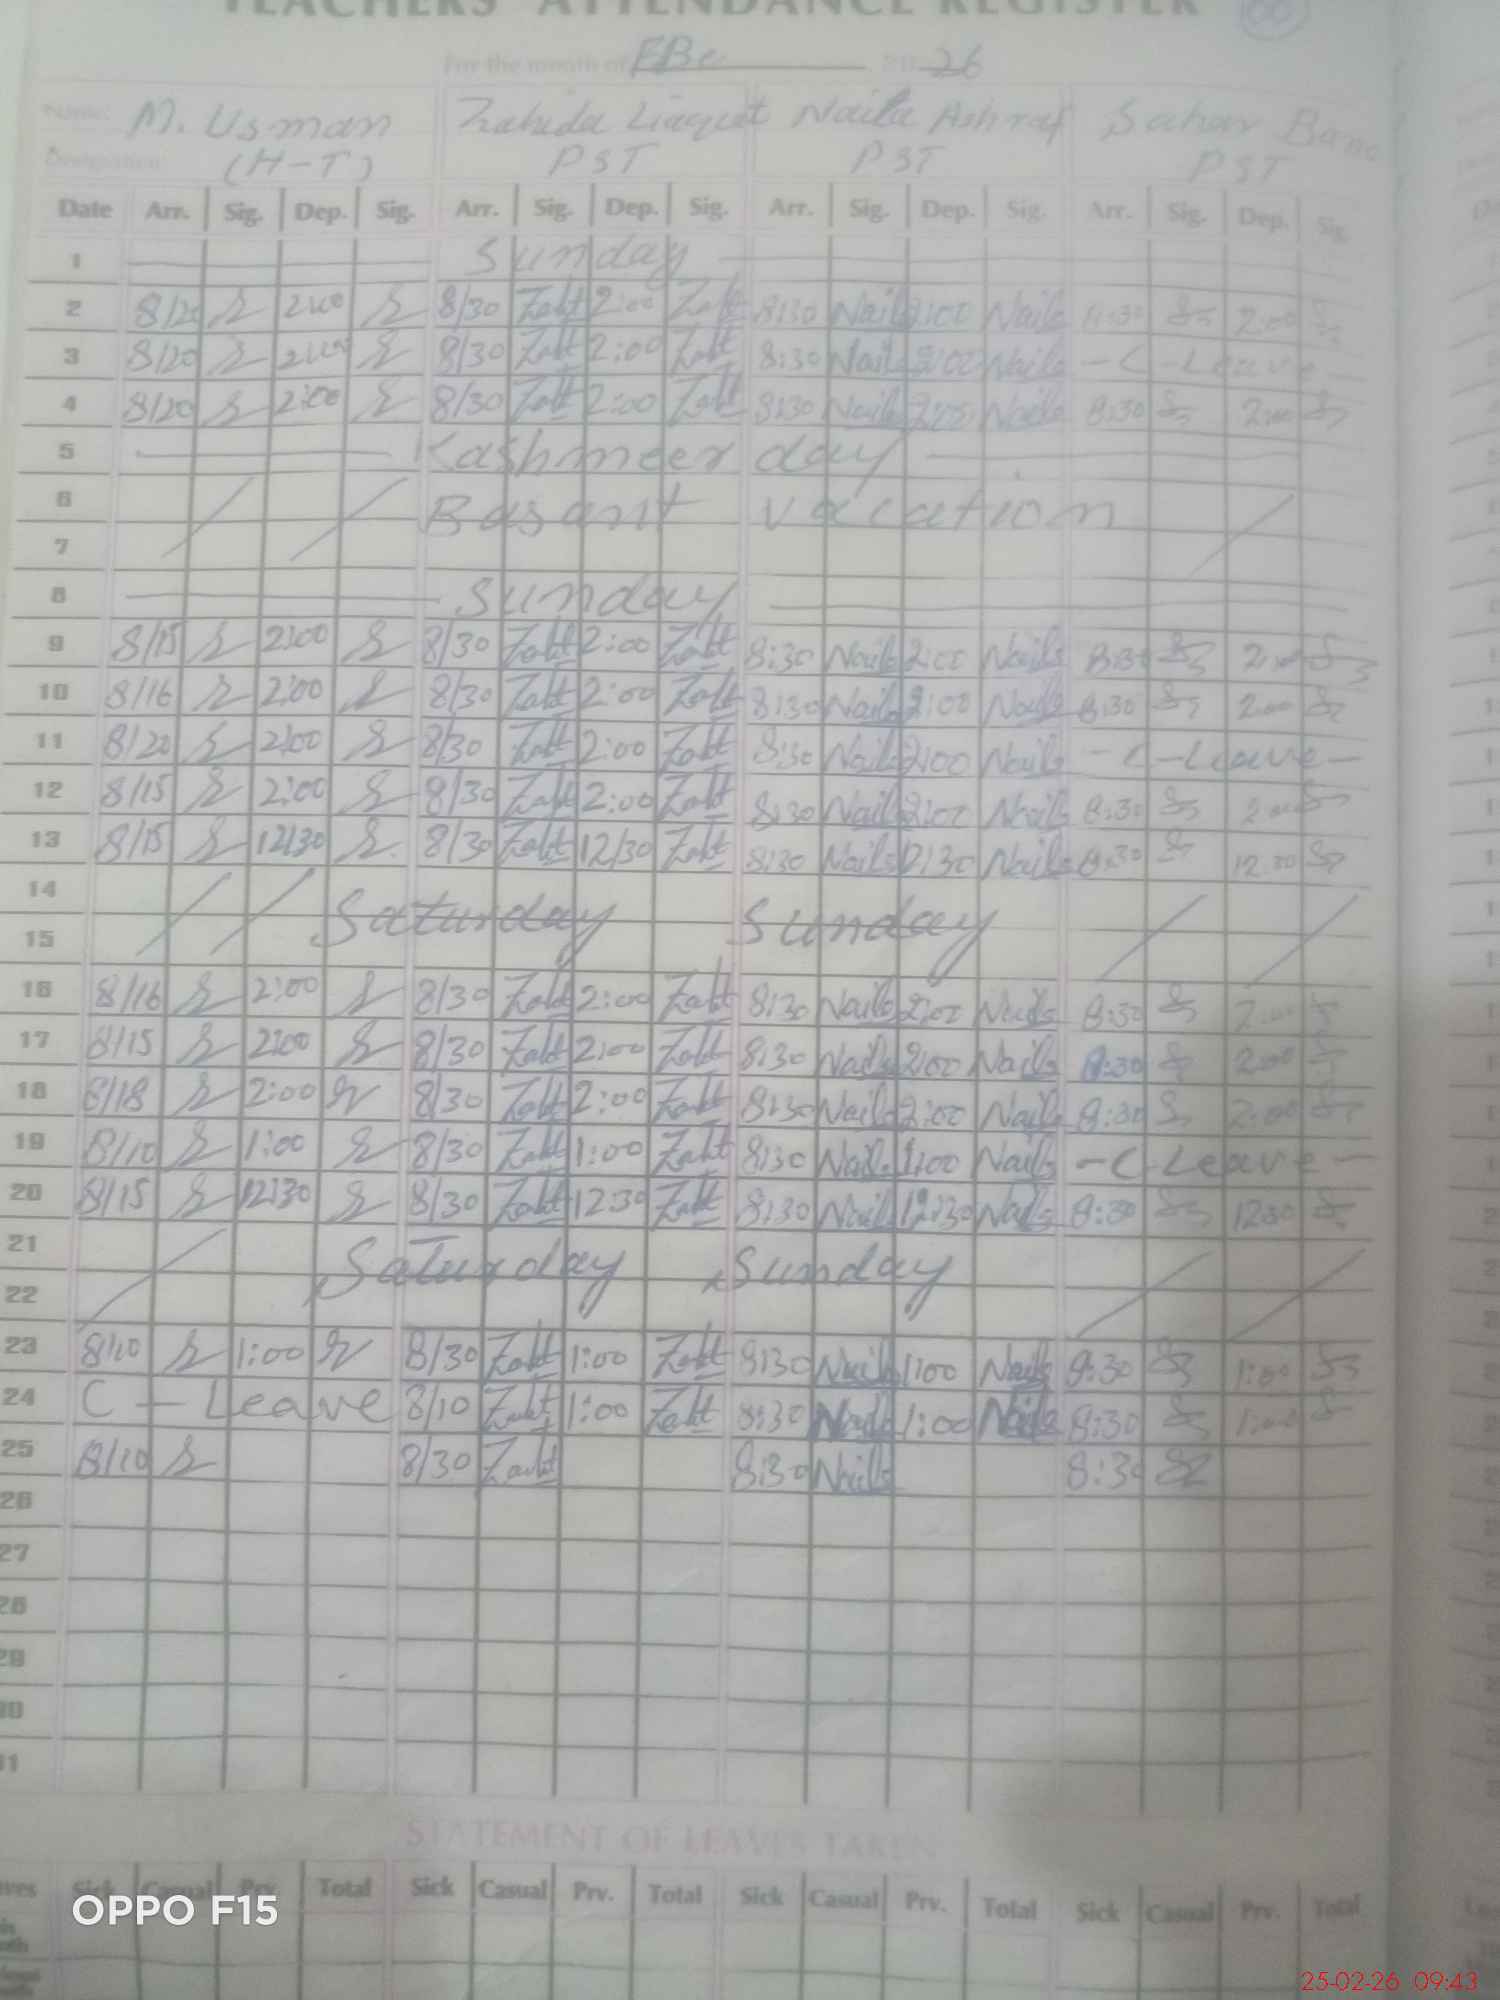 TEACHERS' ATTENDANCE REGISTER
For the month of FBe 2026
Name: M. Usman Zahida Liaquat Naila Ashraf Sahar Bano
Designation (H-T) PST PST PST
Date Arr. Sig. Dep. Sig. Arr. Sig. Dep. Sig. Arr. Sig. Dep. Sig. Arr. Sig. Dep. Sig.
1 Sunday
2 8/20 2:00 8/30 Zabt 2:00 Zabt 8:30 Naila 2:00 Naila 8:30 2:00
3 8/20 2:00 8/30 Zabt 2:00 Zabt 8:30 Naila 2:00 Naila - C - Leave -
4 8/20 2:00 8/30 Zabt 2:00 Zabt 8:30 Naila 2:00 Naila 8:30 2:00
5 Kashmeer day
6 Basant vacation
7
8 Sunday
9 8/15 2:00 8/30 Zabt 2:00 Zabt 8:30 Naila 2:00 Naila 8:30 2:00
10 8/16 2:00 8/30 Zabt 2:00 Zabt 8:30 Naila 2:00 Naila 8:30 2:00
11 8/20 2:00 8/30 Zabt 2:00 Zabt 8:30 Naila 2:00 Naila - C - Leave -
12 8/15 2:00 8/30 Zabt 2:00 Zabt 8:30 Naila 2:00 Naila 8:30 2:00
13 8/15 12/30 8/30 Zabt 12/30 Zabt 8:30 Naila 12:30 Naila 8:30 12:30
14 Saturday Sunday
15
16 8/16 2:00 8/30 Zabt 2:00 Zabt 8:30 Naila 2:00 Naila 8:30 2:00
17 8/15 2:00 8/30 Zabt 2:00 Zabt 8:30 Naila 2:00 Naila 8:30 2:00
18 8/18 2:00 8/30 Zabt 2:00 Zabt 8:30 Naila 2:00 Naila 8:30 2:00
19 8/10 1:00 8/30 Zabt 1:00 Zabt 8:30 Naila 1:00 Naila - C - Leave -
20 8/15 12:30 8/30 Zabt 12:30 Zabt 8:30 Naila 12:30 Naila 8:30 12:30
21 Saturday Sunday
22
23 8/20 1:00 8/30 Zabt 1:00 Zabt 8:30 Naila 1:00 Naila 8:30 1:00
24 C - Leave 8/10 Zabt 1:00 Zabt 8:30 Naila 1:00 Naila 8:30 1:00
25 8/20 8/30 Zabt 8:30 Naila 8:30
26
27
28
29
30
31
STATEMENT OF LEAVES TAKEN
Sick Casual Prv. Total Sick Casual Prv. Total Sick Casual Prv. Total Sick Casual Prv. Total
OPPO F15
25-02-26 09:43